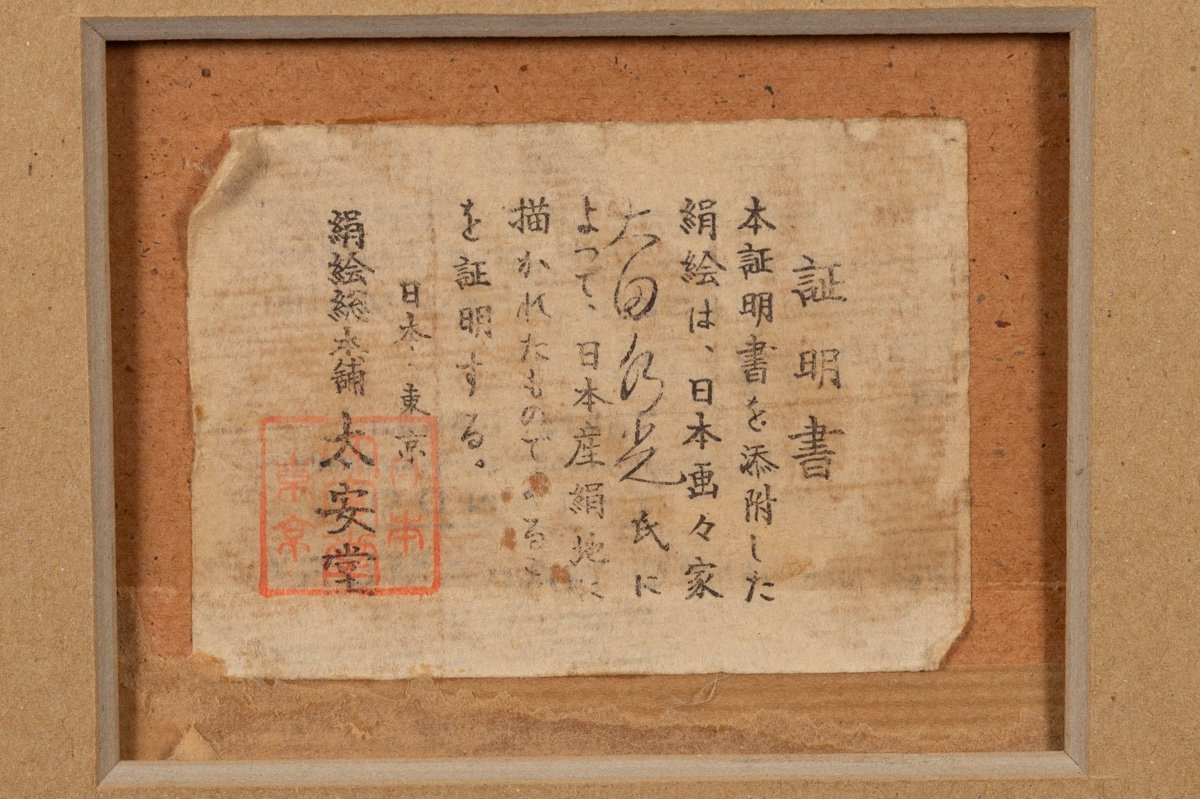 証明書
本証明書を添附した
絹絵は、日本画々家
大田 光氏に
よって、日本産絹地に
描かれたものであるこ
を証明する。
日本・東京
絹絵総本舗 大安堂
日本
東京